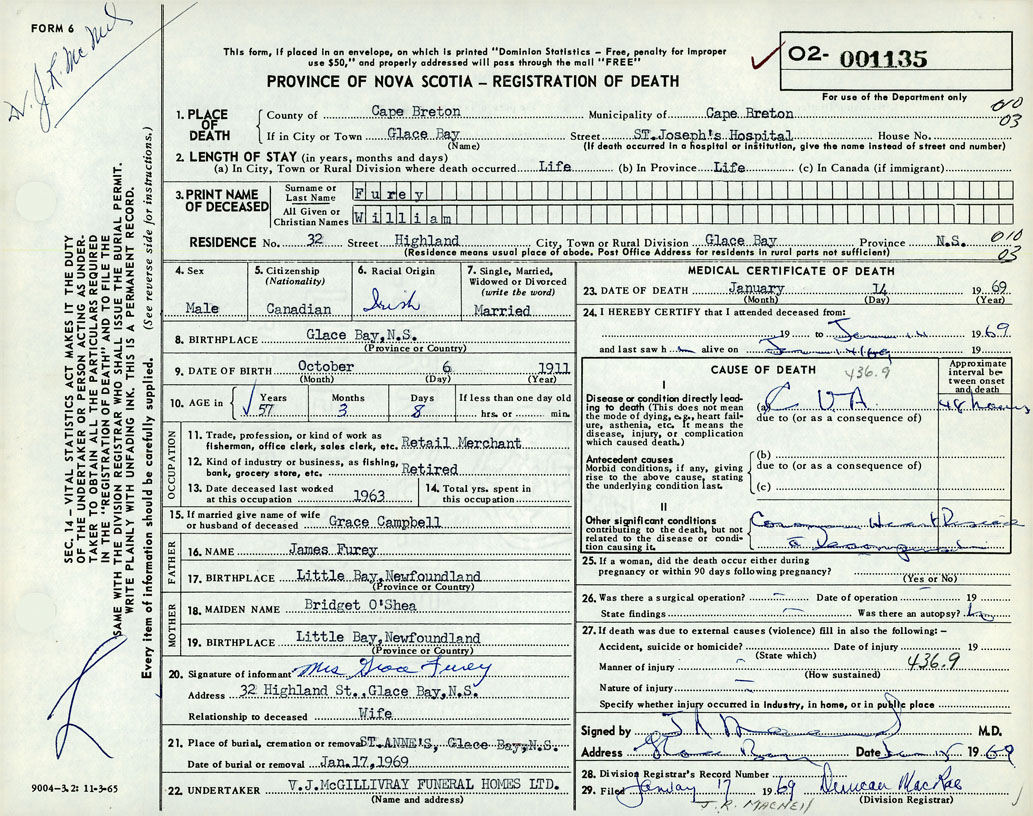 FORM 6
Dr. J.R. McNeil
This form, if placed in an envelope, on which is printed "Dominion Statistics – Free, penalty for improper
use $50," and properly addressed will pass through the mail "FREE"
PROVINCE OF NOVA SCOTIA – REGISTRATION OF DEATH
02- 001135
For use of the Department only
010
03
1. PLACE OF DEATH
County of Cape Breton Municipality of Cape Breton
If in City or Town Glace Bay Street ST.Joseph's Hospital House No.
(Name) (If death occurred in a hospital or institution, give the name instead of street and number)
2. LENGTH OF STAY (in years, months and days)
(a) In City, Town or Rural Division where death occurred Life (b) In Province Life (c) In Canada (if immigrant)
3. PRINT NAME OF DECEASED
Surname or Last Name Furey
All Given or Christian Names William
RESIDENCE No. 32 Street Highland City, Town or Rural Division Glace Bay Province N.S.
(Residence means usual place of abode. Post Office Address for residents in rural parts not sufficient)
010
03
4. Sex
Male
5. Citizenship
(Nationality)
Canadian
6. Racial Origin
Irish
7. Single, Married,
Widowed or Divorced
(write the word)
Married
8. BIRTHPLACE Glace Bay,N.S.
(Province or Country)
9. DATE OF BIRTH October 6 1911
(Month) (Day) (Year)
10. AGE in Years Months Days If less than one day old
57 3 8 hrs. or min.
OCCUPATION
11. Trade, profession, or kind of work as
fisherman, office clerk, sales clerk, etc. Retail Merchant
12. Kind of industry or business, as fishing,
bank, grocery store, etc. Retired
13. Date deceased last worked
at this occupation 1963
14. Total yrs. spent in
this occupation
15. If married give name of wife
or husband of deceased Grace Campbell
FATHER
16. NAME James Furey
17. BIRTHPLACE Little Bay,Newfoundland
(Province or Country)
MOTHER
18. MAIDEN NAME Bridget O'Shea
19. BIRTHPLACE Little Bay,Newfoundland
(Province or Country)
20. Signature of informant Mrs Grace Furey
Address 32 Highland St.,Glace Bay,N.S.
Relationship to deceased Wife
21. Place of burial, cremation or removal ST.ANNE'S, Glace Bay,N.S.
Date of burial or removal Jan.17,1969
22. UNDERTAKER V.J.McGILLIVRAY FUNERAL HOMES LTD.
(Name and address)
MEDICAL CERTIFICATE OF DEATH
23. DATE OF DEATH January 14 1969
(Month) (Day) (Year)
24. I HEREBY CERTIFY that I attended deceased from:
19 to 1969
and last saw h alive on 19
CAUSE OF DEATH
436.9
Approximate interval between onset and death
I
Disease or condition directly leading to death (This does not mean the mode of dying, e.g., heart failure, asthenia, etc. It means the disease, injury, or complication which caused death.)
(a) C V A 48 hours
due to (or as a consequence of)
Antecedent causes
Morbid conditions, if any, giving rise to the above cause, stating the underlying condition last.
(b)
due to (or as a consequence of)
(c)
II
Other significant conditions
contributing to the death, but not related to the disease or condition causing it.
Coronary Heart Disease
25. If a woman, did the death occur either during
pregnancy or within 90 days following pregnancy?
(Yes or No)
26. Was there a surgical operation? Date of operation 19
State findings Was there an autopsy?
27. If death was due to external causes (violence) fill in also the following: –
Accident, suicide or homicide? Date of injury 19
(State which)
Manner of injury 436.9
(How sustained)
Nature of injury
Specify whether injury occurred in industry, in home, or in public place
Signed by M.D.
Address Glace Bay Date Jan 15 1969
28. Division Registrar's Record Number
29. Filed January 17 1969 Duncan MacRae
(Division Registrar)
J.R. MACNEIL
SEC. 14 – VITAL STATISTICS ACT MAKES IT THE DUTY
OF THE UNDERTAKER OR PERSON ACTING AS UNDER-
TAKER TO OBTAIN ALL THE PARTICULARS REQUIRED
IN THE "REGISTRATION OF DEATH" AND TO FILE THE
SAME WITH THE DIVISION REGISTRAR WHO SHALL ISSUE THE BURIAL PERMIT.
WRITE PLAINLY WITH UNFADING INK. THIS IS A PERMANENT RECORD.
Every item of information should be carefully supplied. (See reverse side for instructions.)
9004-3.2: 11-3-65